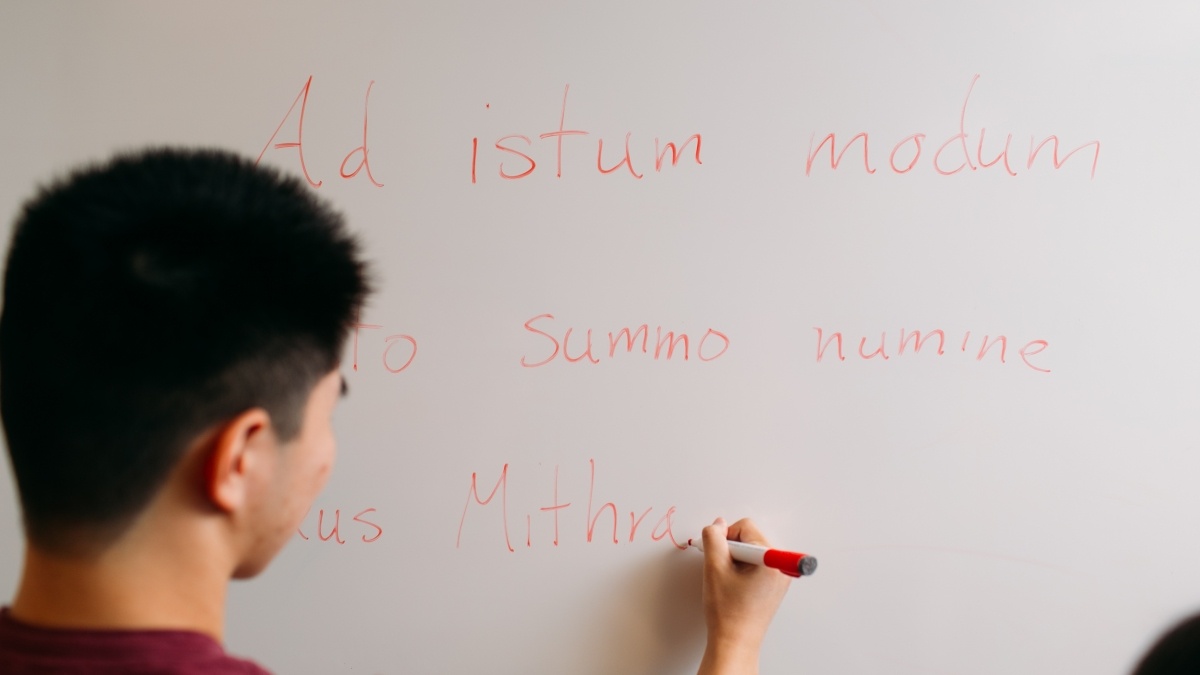 Ad istum modum
to Summo numine
us Mithra